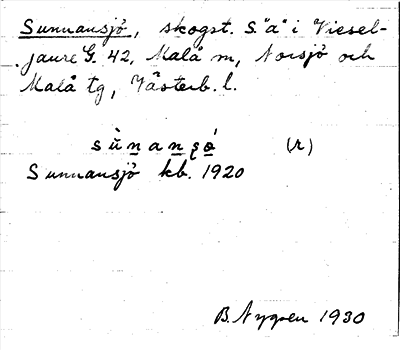 Sunnansjö, skogst. S. "a" i Viesel-
jaure G. 42, Malå m, Norsjö och
Malå tg, Västerb. l.
sùnanʂǿ (r)
Sunnansjö kb. 1920
B. Nygren 1930